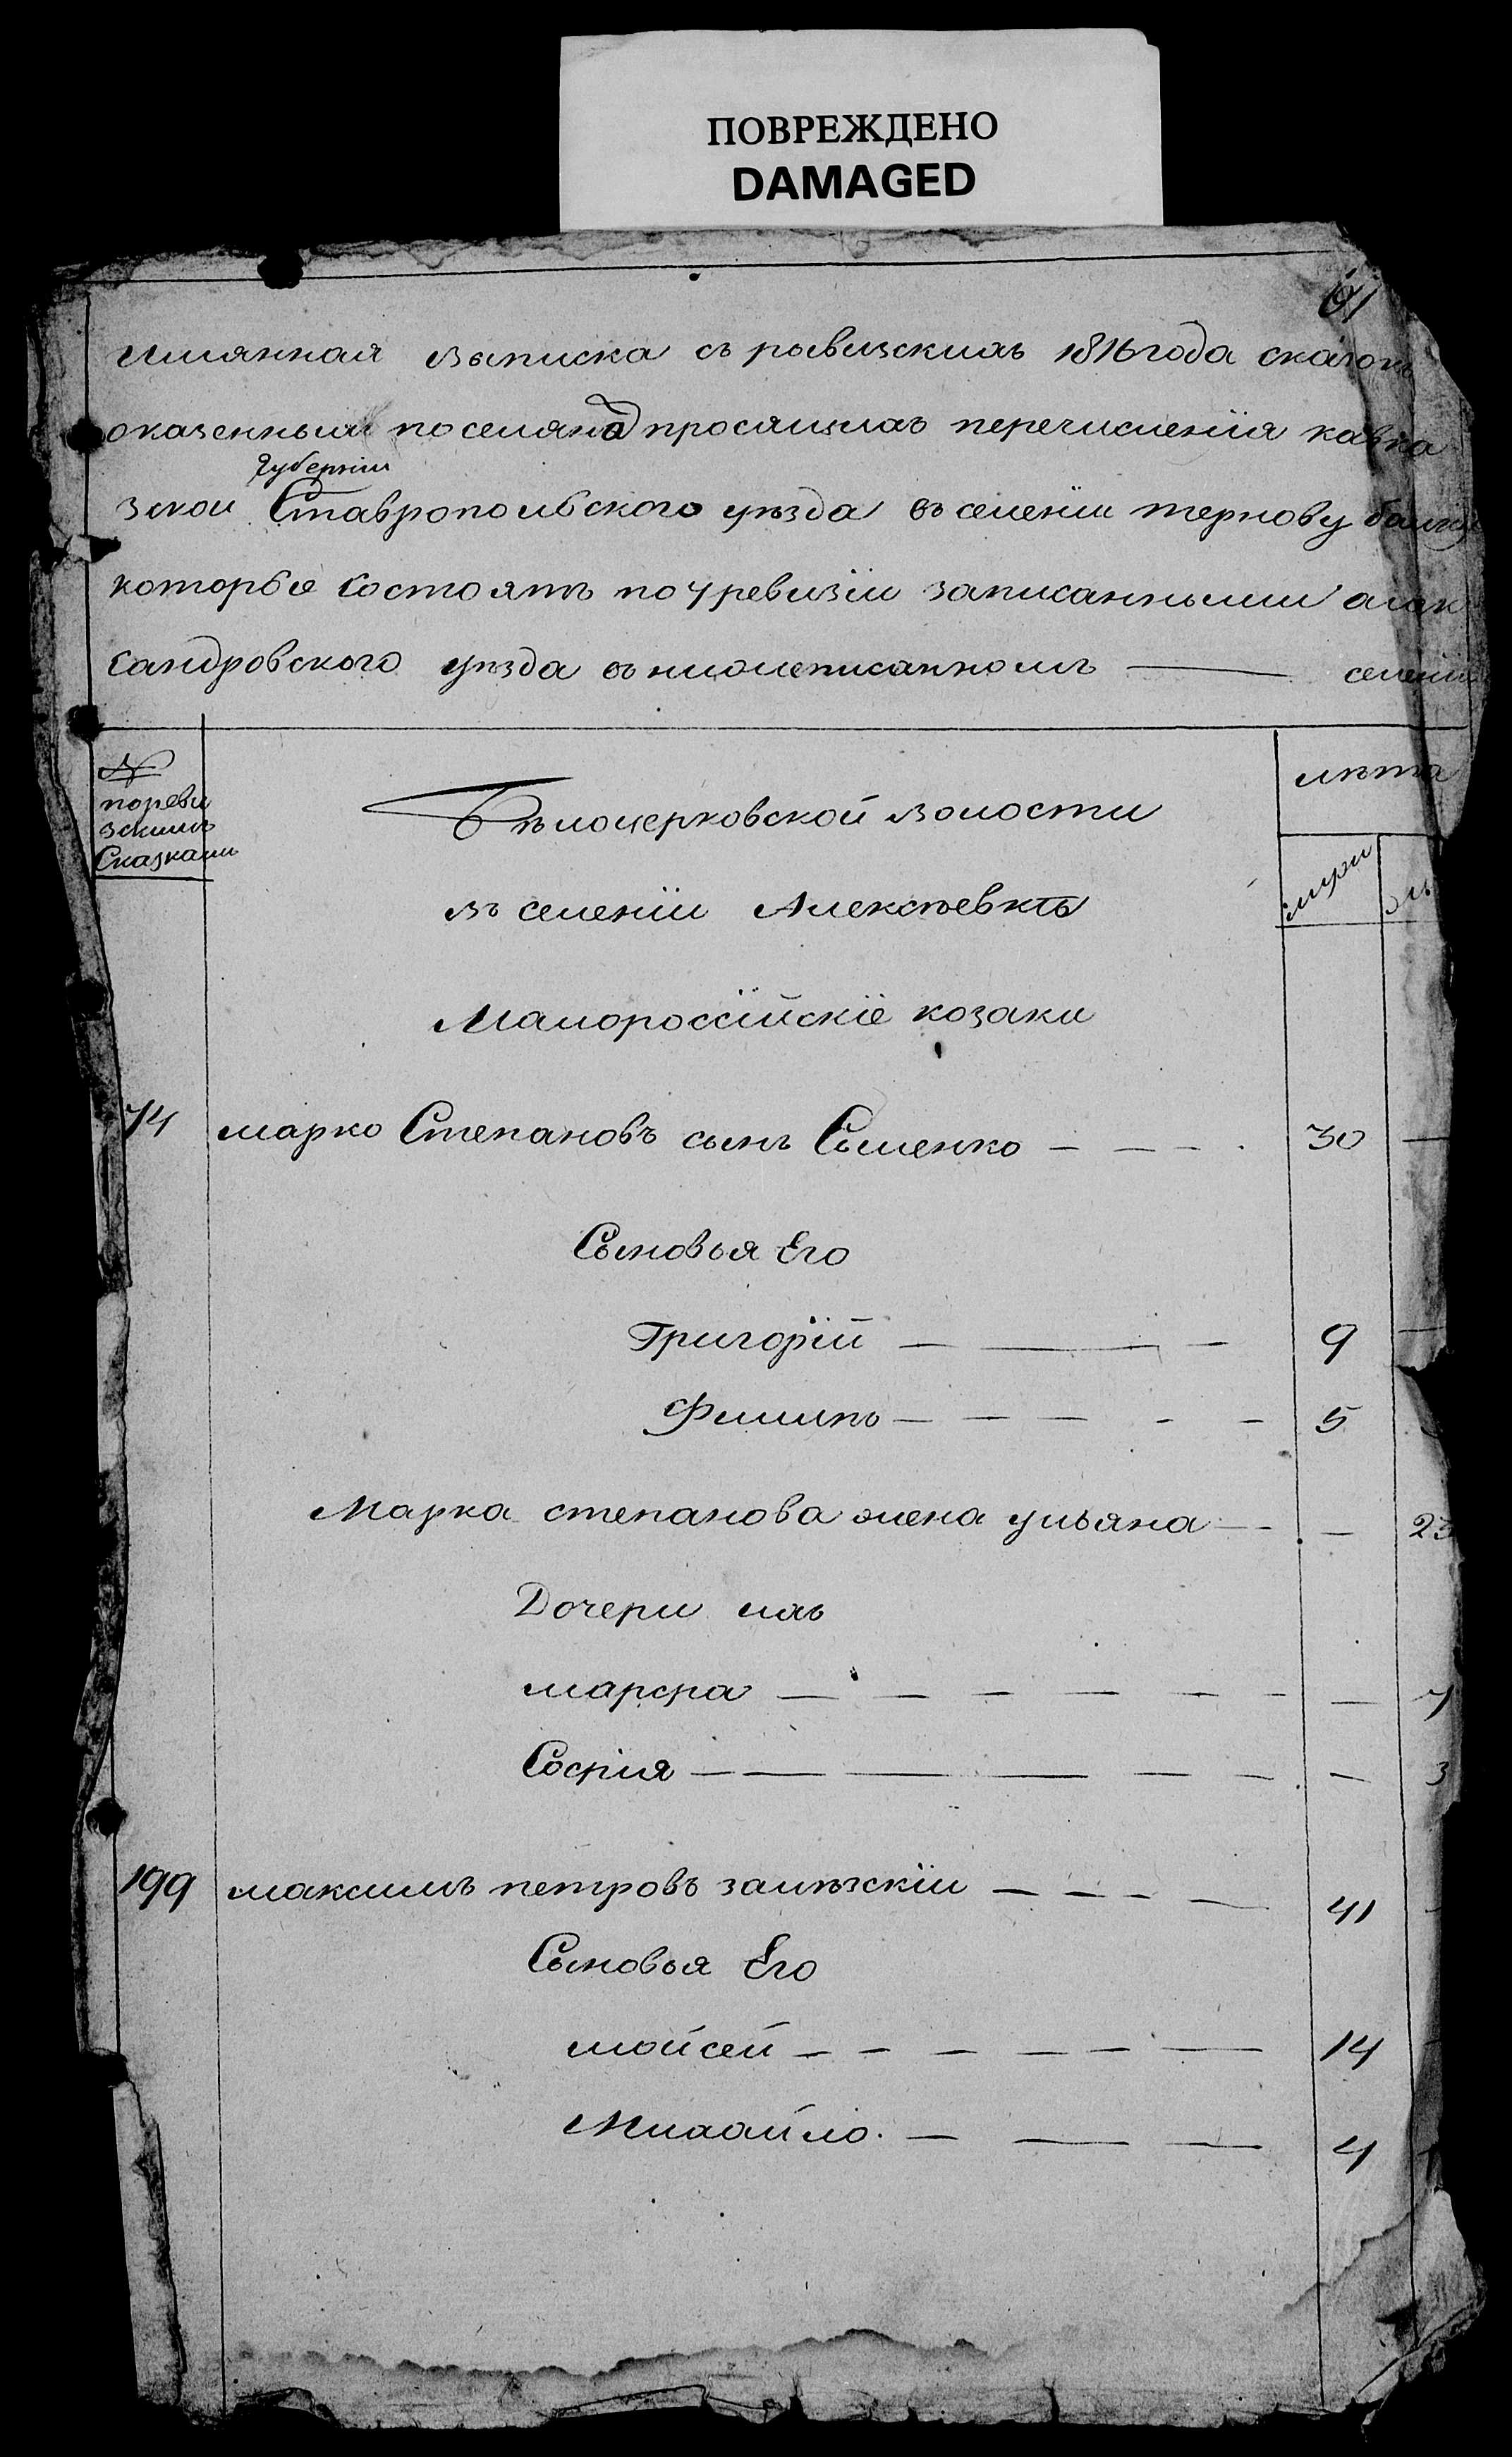 ПОВРЕЖДЕНО
DAMAGED
61
имянная выписка съ ревизскихъ 1816 года сказокъ
оказенныхъ поселянахъ просящихъ перечисленія кавка
зкои губерніи Ставропольского уѣзда въ селеніи тернову балку
которые состоятъ по 7 ревизіи записанными алек
сандровского уѣзда въ нижеписанномъ — селеніи
№ лѣта
пореви
зскимъ
Сказкамъ
Бѣлоцерковской волости
мужи
въ селеніи Алексѣевкѣ
Малороссійскіе козаки
74 марко Степановъ сынъ Сименко — — — 30 —
Сыновья Его
Григорій — — — 9 —
Филипъ — — — — — 5
Марка степанова жена ульяна — — 23
Дочери ихъ
марфа — — — — — — — 7
София — — — — — — — 3
199 максимъ петровъ залѣзскіи — — — — 41
Сыновья Его
мойсей — — — — — — 14
Михайло — — — 4